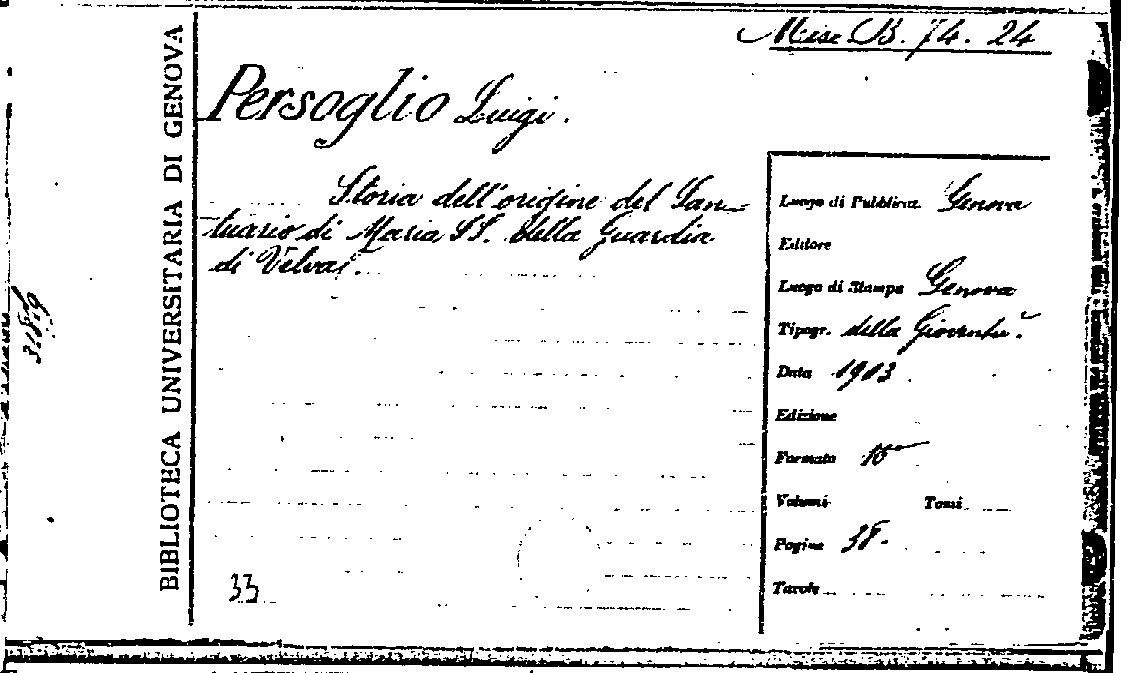 Misc B. 74. 24
BIBLIOTECA UNIVERSITARIA DI GENOVA
Persoglio Luigi.
Storia dell'origine del San-
tuario di Maria SS. della Guardia
di Velva.
Luogo di Pubblica. Genova
Editore
Luogo di Stampa Genova
Tipogr. della Gioventù.
Data 1903
Edizione
Formato 16°
Volumi Tomi
Pagine 38.
Tavole
33